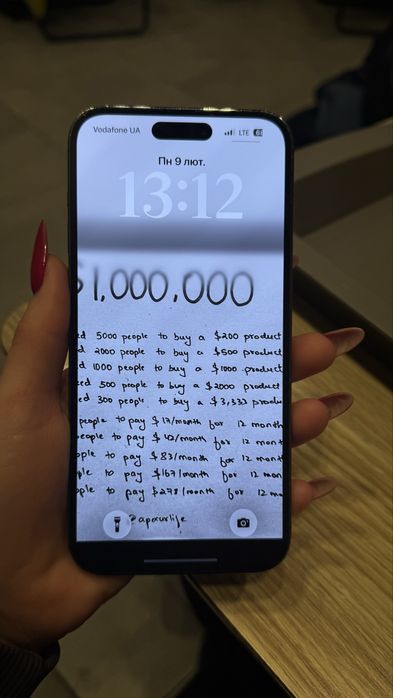 Vodafone UA LTE
Пн 9 лют.
13:12
$1,000,000
ed 5000 people to buy a $200 product
d 2000 people to buy a $500 product
d 1000 people to buy a $1000 product
ed 500 people to buy a $2000 product
ed 300 people to buy a $3,333 produc
people to pay $17/month for 12 month
eople to pay $42/month for 12 mont
ople to pay $83/month for 12 mont
ple to pay $167/month for 12 mon
ople to pay $278/month for 12 mo
@apexurlife